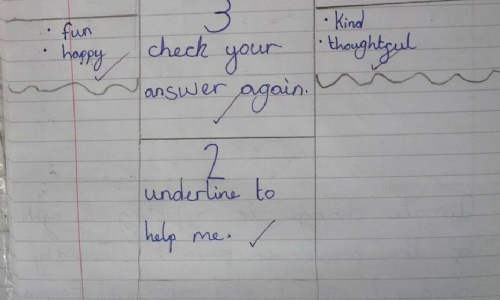 • fun
• happy
3
check your
answer again.
2
underline to
help me.
• Kind
• thoughtful